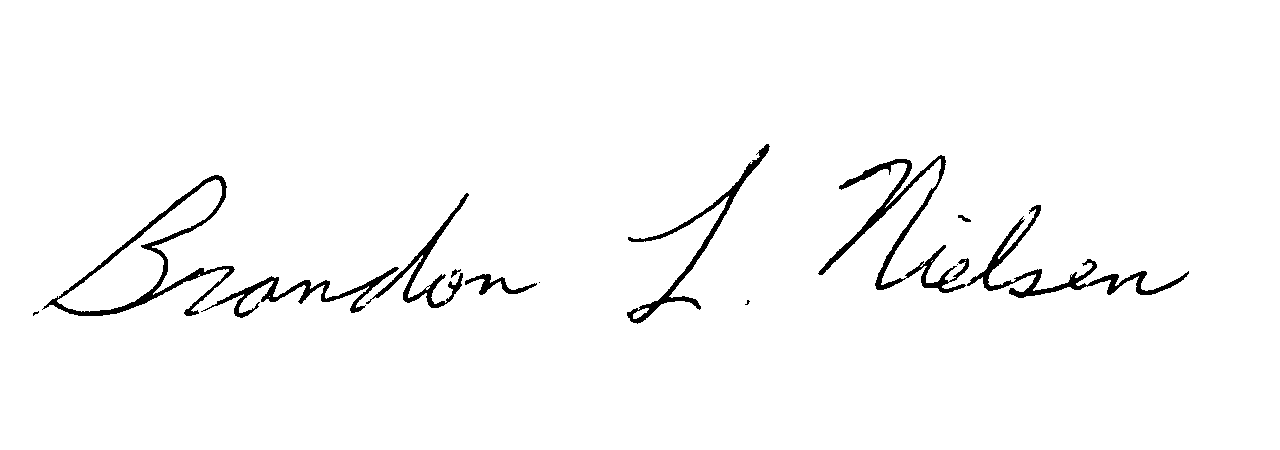 Brandon L. Nielsen